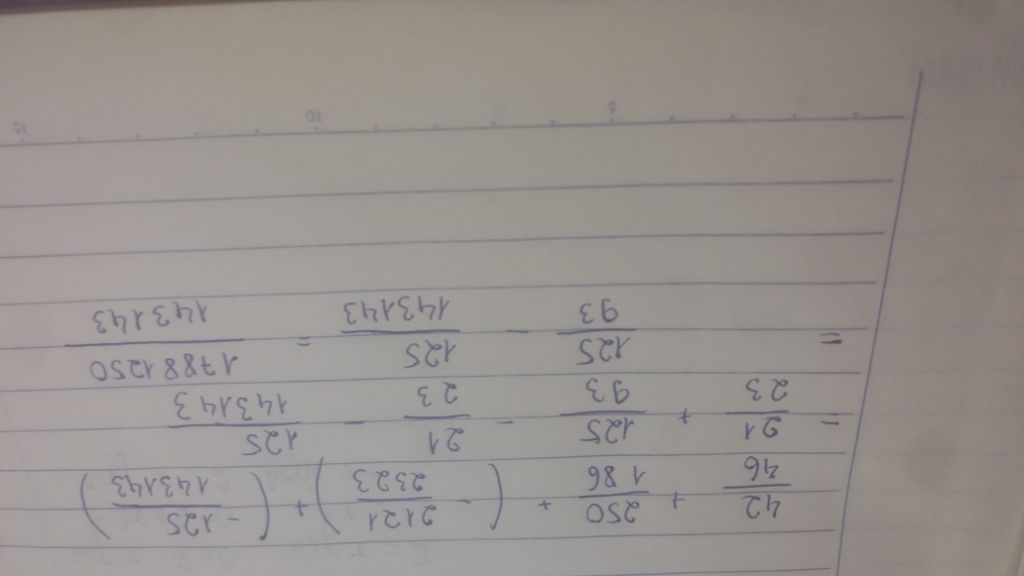 42/46 + 250/186 + (-2121/2323) + (-125/143143)
= 21/23 + 125/93 - 21/23 - 125/143143
= 125/93 - 125/143143 = 17881250/143143
8 10